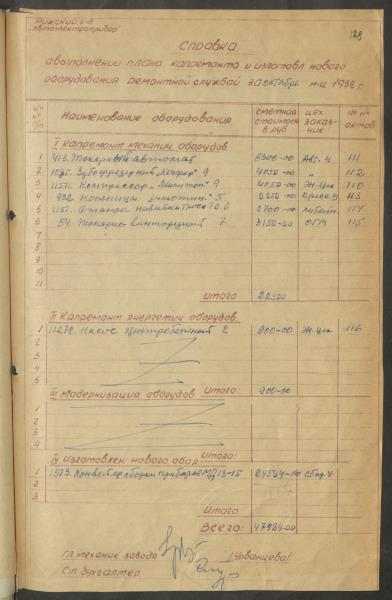 Рижский з-д
"Автоэлектроприбор"
128
Справка
о выполнении плана капремонта и изготовл. нового
оборудования ремонтной службой за октябрь м-ц 1958 г.
№№ п/п Наименование оборудования сметная стоимость в руб цех заказчик №№ актов
I Капремонт механич оборудов
1 413. Токарный автомат 6300-00 Авт. ц 111
2 1085. Зубофрезерный 9 4050-00 " 112
3 11511. Компрессор 9 4050-00 Эн-цех 110
4 932. Ножницы 5 2250-00 113
5 1151. Станок навивки 2700-00 114
6 54. Токарно винторезный 7 3150-00 115
7
8
9
10
11
Итого 22500
II Капремонт энергетич оборудов
1 11272. Насос центробежный 2 900-00 Эн-цех 116
2
3
4
5
III Модернизация оборудов Итого: 900-00
1
2
3
4
IV Изготовлен нового обор Итого:
1 1573. Конвейер сборки 13-15 24584-00 сбор. ц.
2
3
Итого:
Всего: 47984-00
Гл. механик завода (Чованцева)
Ст. бухгалтер